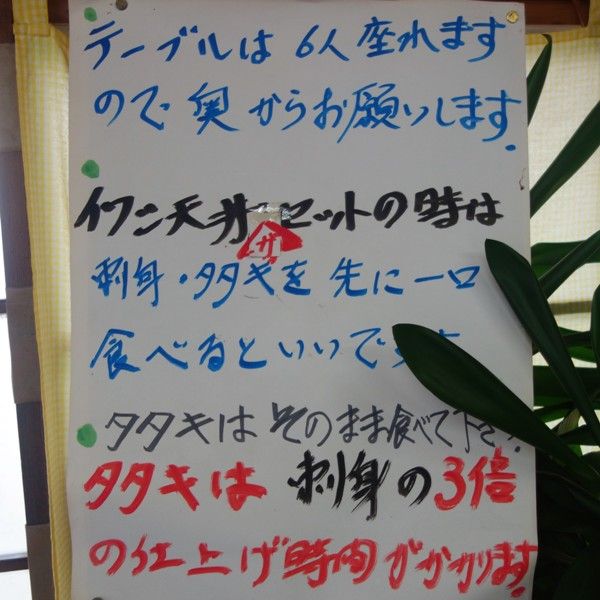 テーブルは 6人座れます
ので 奥からお願いします.
イワシ天丼 セットの時は
サ
刺身・タタキを 先に一口
食べるといいです
タタキは そのまま食べて下さ
タタキは 刺身の3倍
の仕上げ時間がかかります.